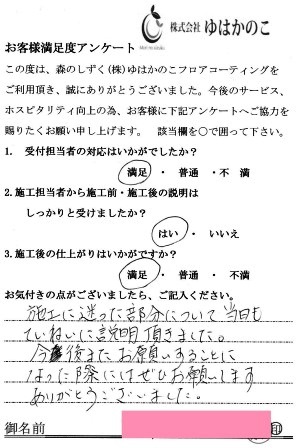 株式会社 ゆはかのこ
お客様満足度アンケート
この度は、森のしずく(株)ゆはかのこフロアコーティングを
ご利用頂き、誠にありがとうございました。今後のサービス、
ホスピタリティ向上の為、お客様に下記アンケートへご協力を
賜りたくお願い申し上げます。 該当欄を○で囲って下さい。
1. 受付担当者の対応はいかがでしたか?
満足 ・ 普通 ・ 不 満
2.施工担当者から施工前・施工後の説明は
しっかりと受けましたか?
はい ・ いいえ
3.施工後の仕上がりはいかがですか?
満足 ・ 普通 ・ 不 満
お気付きの点がございましたら、ご記入ください。
施工に迷った部分について当日も
ていねいに説明頂きました。
今後またお願いすることに
なった際にはぜひお願いします
ありがとうございました。
御名前
印